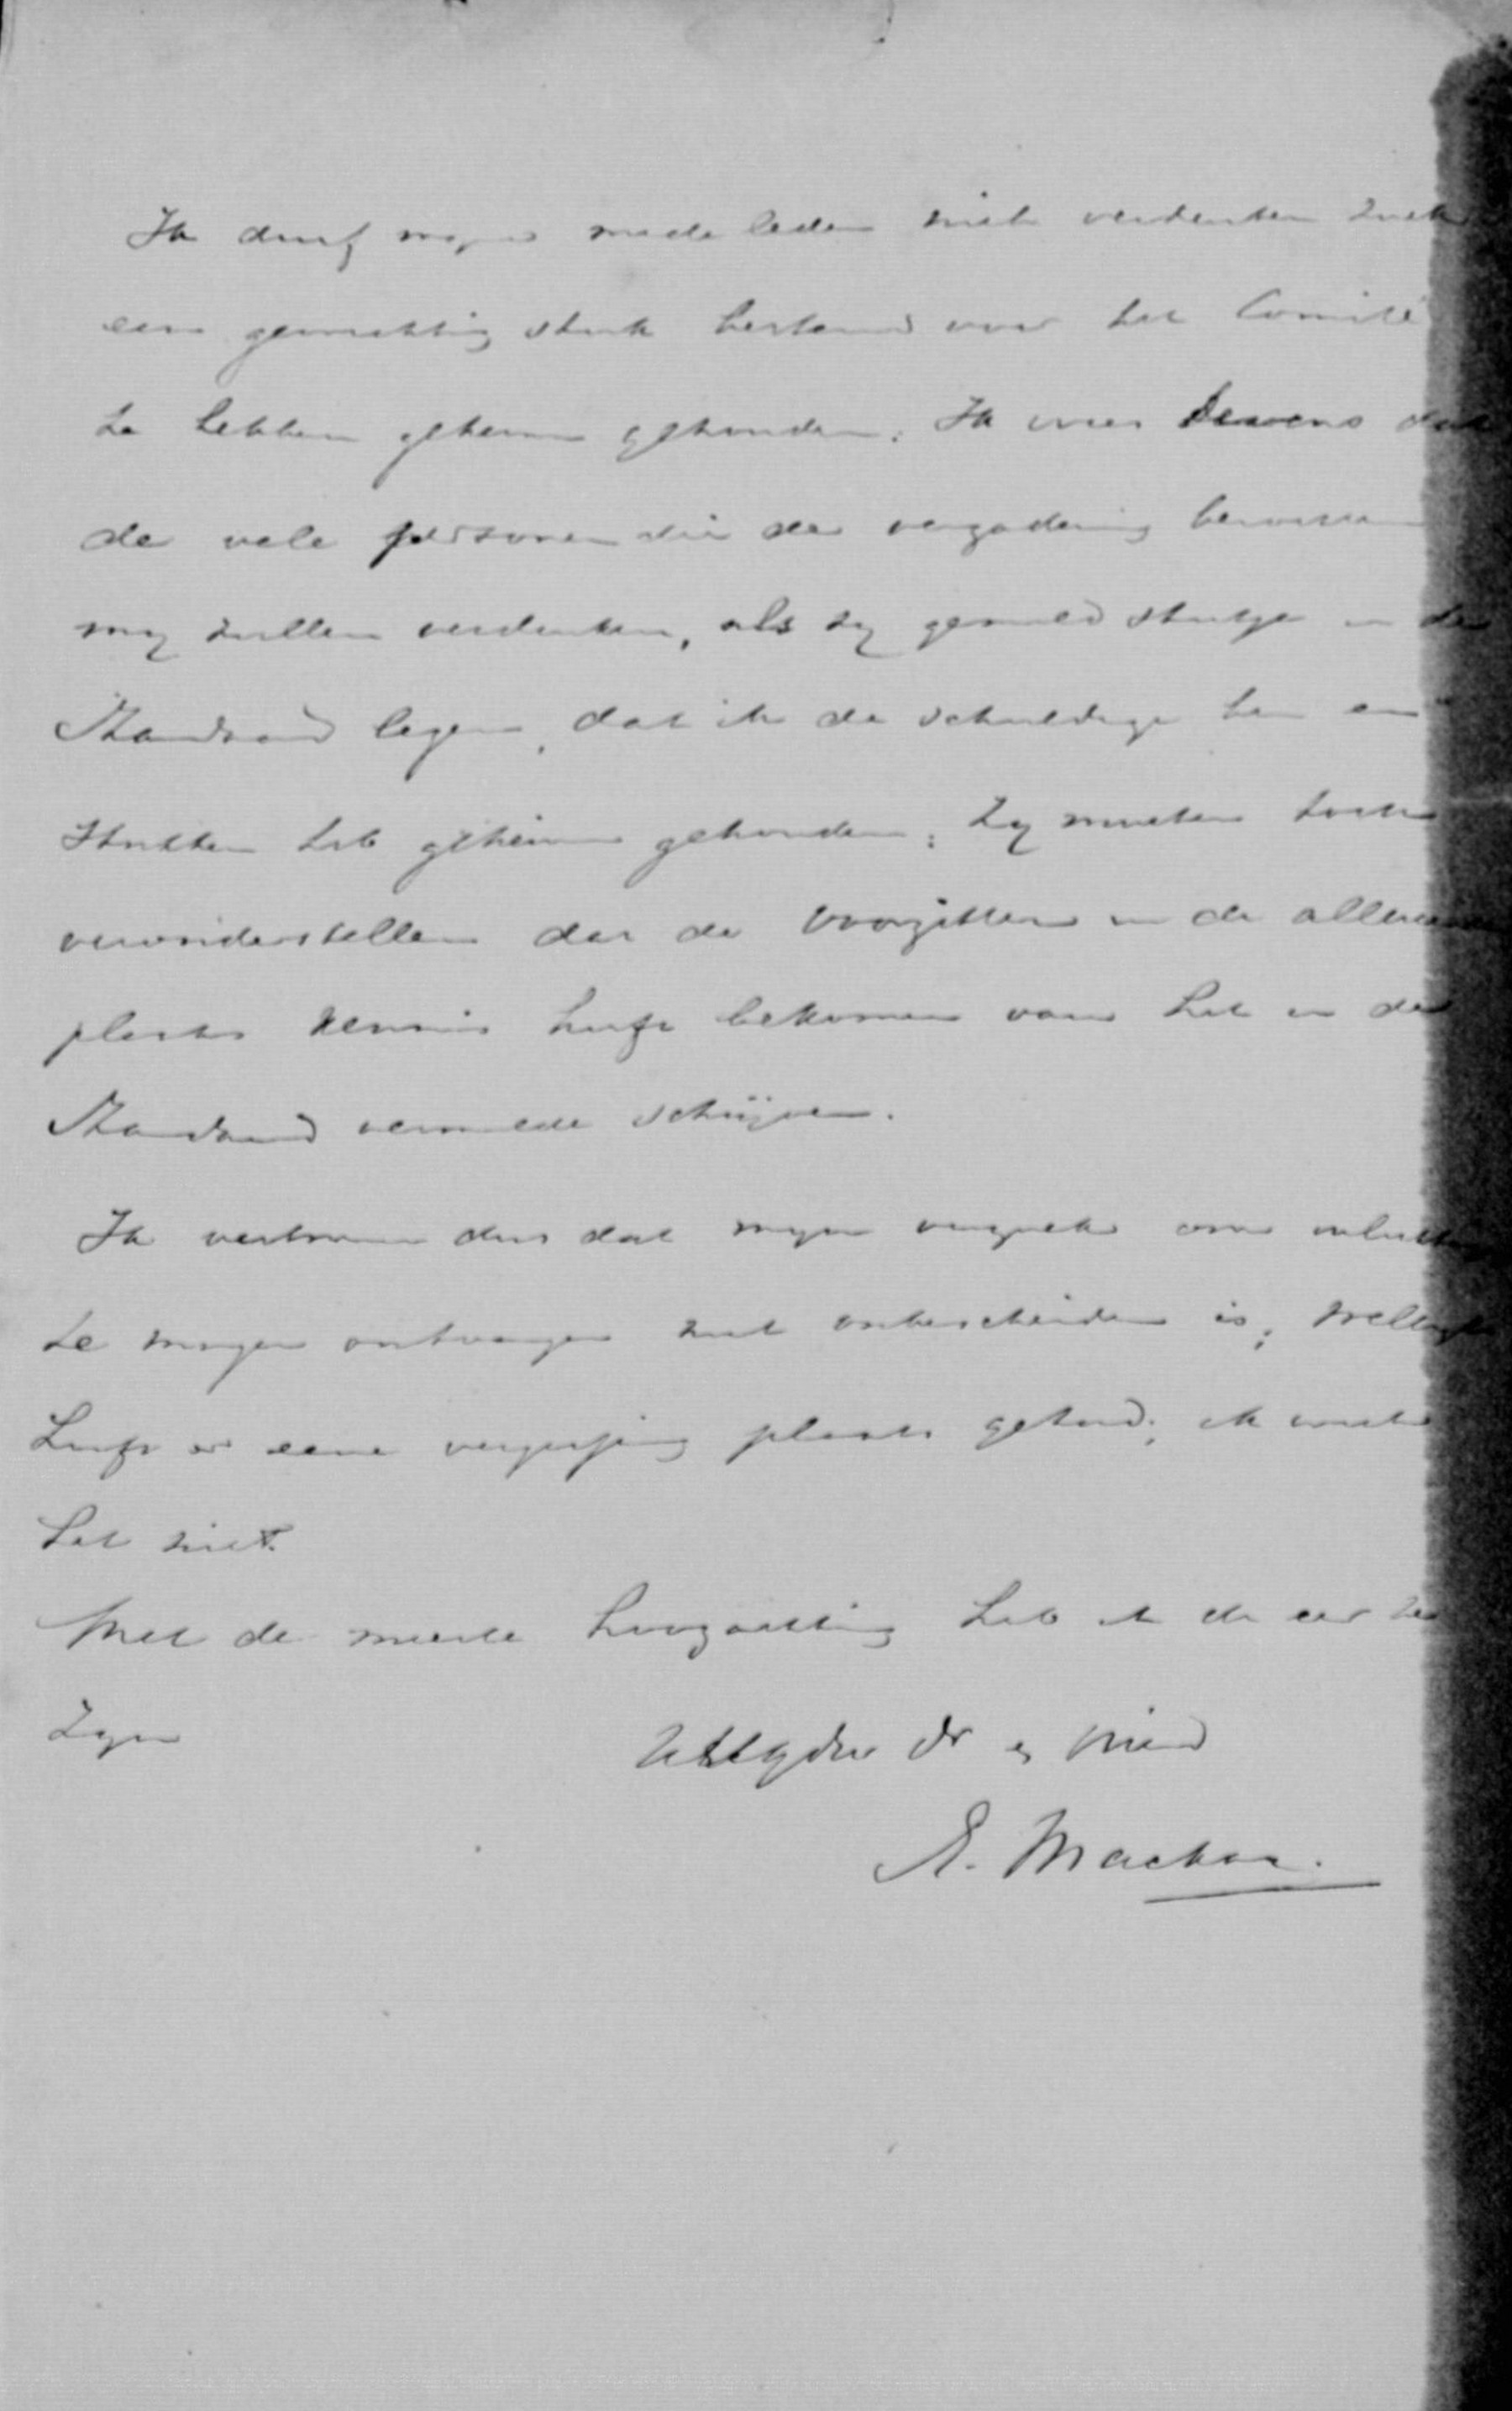 Ik durf myne medeleden niet verdenken zulk
een gewichtig stuk bestemd voor het Comité
te hebben geheim gehouden. Ik vrees tevens dat
de vele personen die de vergadering
my zullen verdenken, als zy gemeld stukje in de
Standaard lezen, dat ik de schuldige ben en
stukken heb geheim gehouden; zy moeten toch
veronderstellen dat de voorzitter in de allereerste
plaats kennis heeft bekomen van het in de
Standaard vermelde schryven.
Ik vertrouw dus dat myn verzoek om
te mogen ontvangen niet onbescheiden is; wellicht
heeft er eene vergissing plaats gehad; ik weet
het niet.
Met de meeste hoogachting heb ik de eer te
zyn
Dr en vriend
E. Mackay.